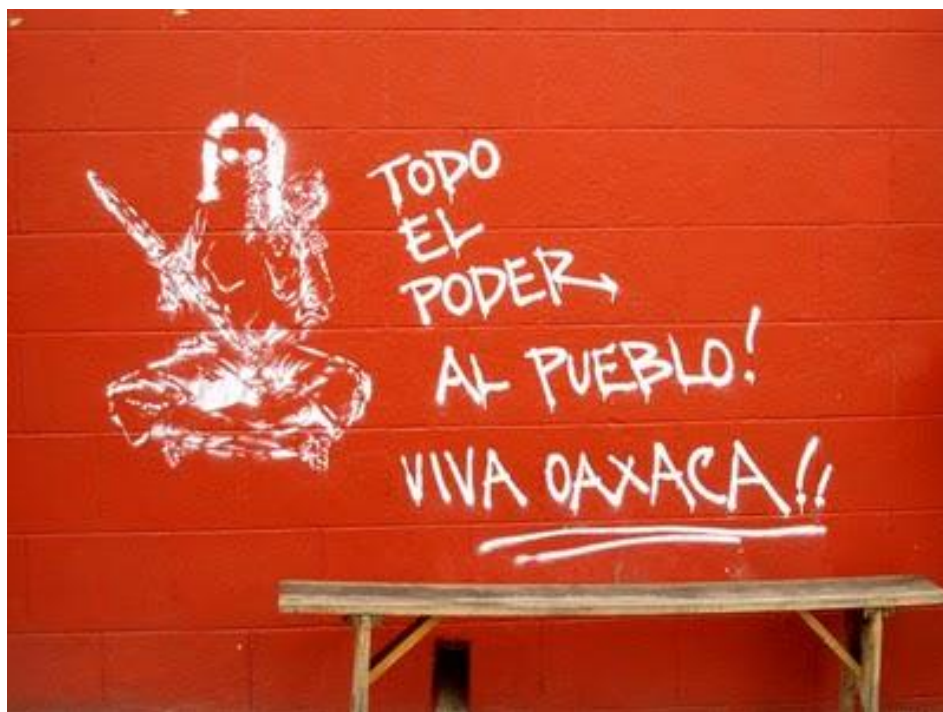 TODO
EL
PODER
AL PUEBLO!
VIVA OAXACA!!